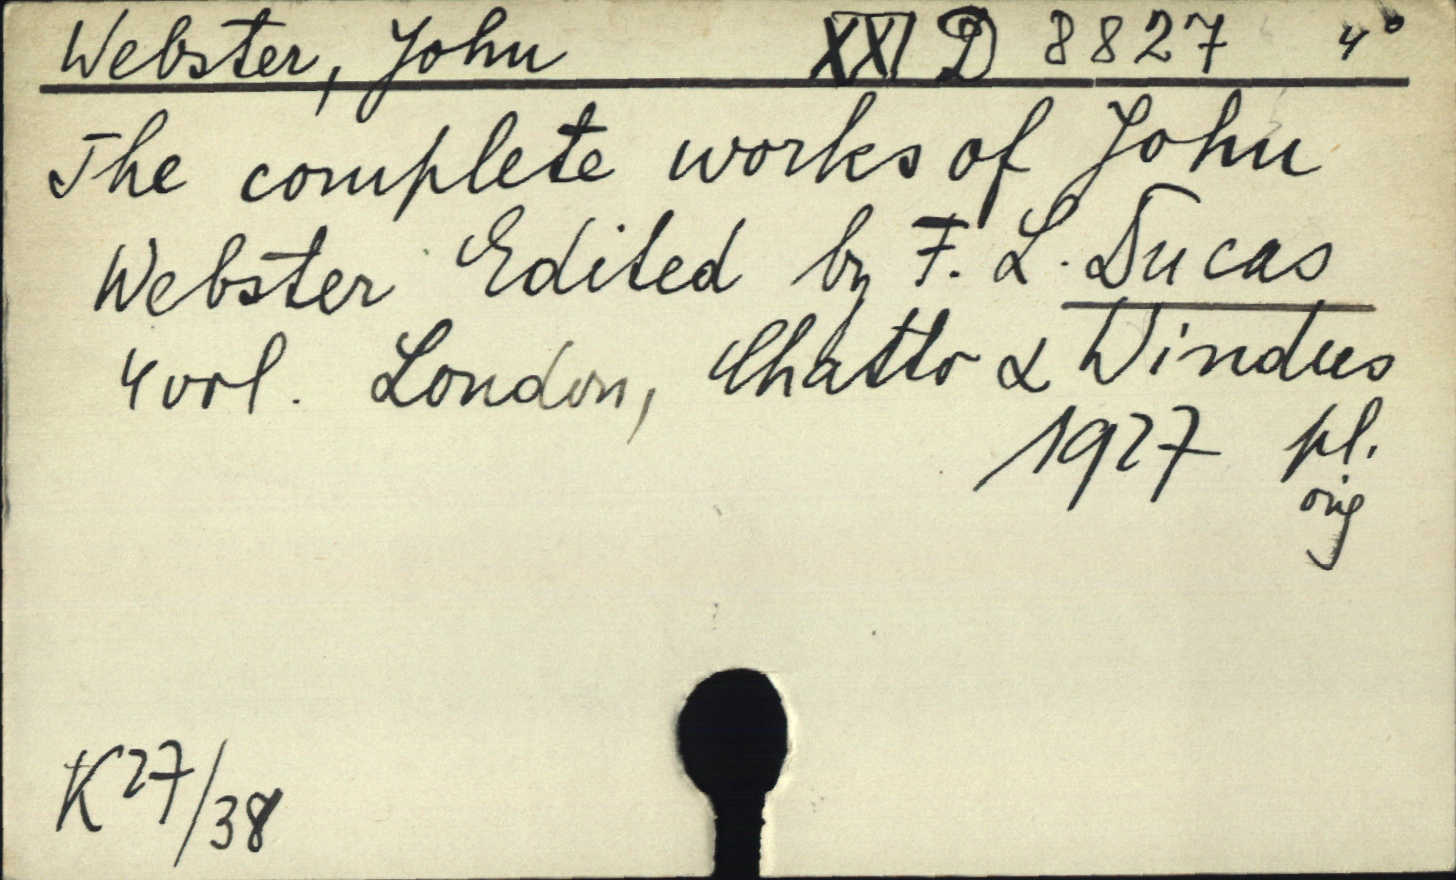 Webster, John XXI D 8827 4°
The complete works of John
Webster Edited by F. L. Lucas
4 vol. London, Chatto & Windus
1927 pl.
orig
K 27/38